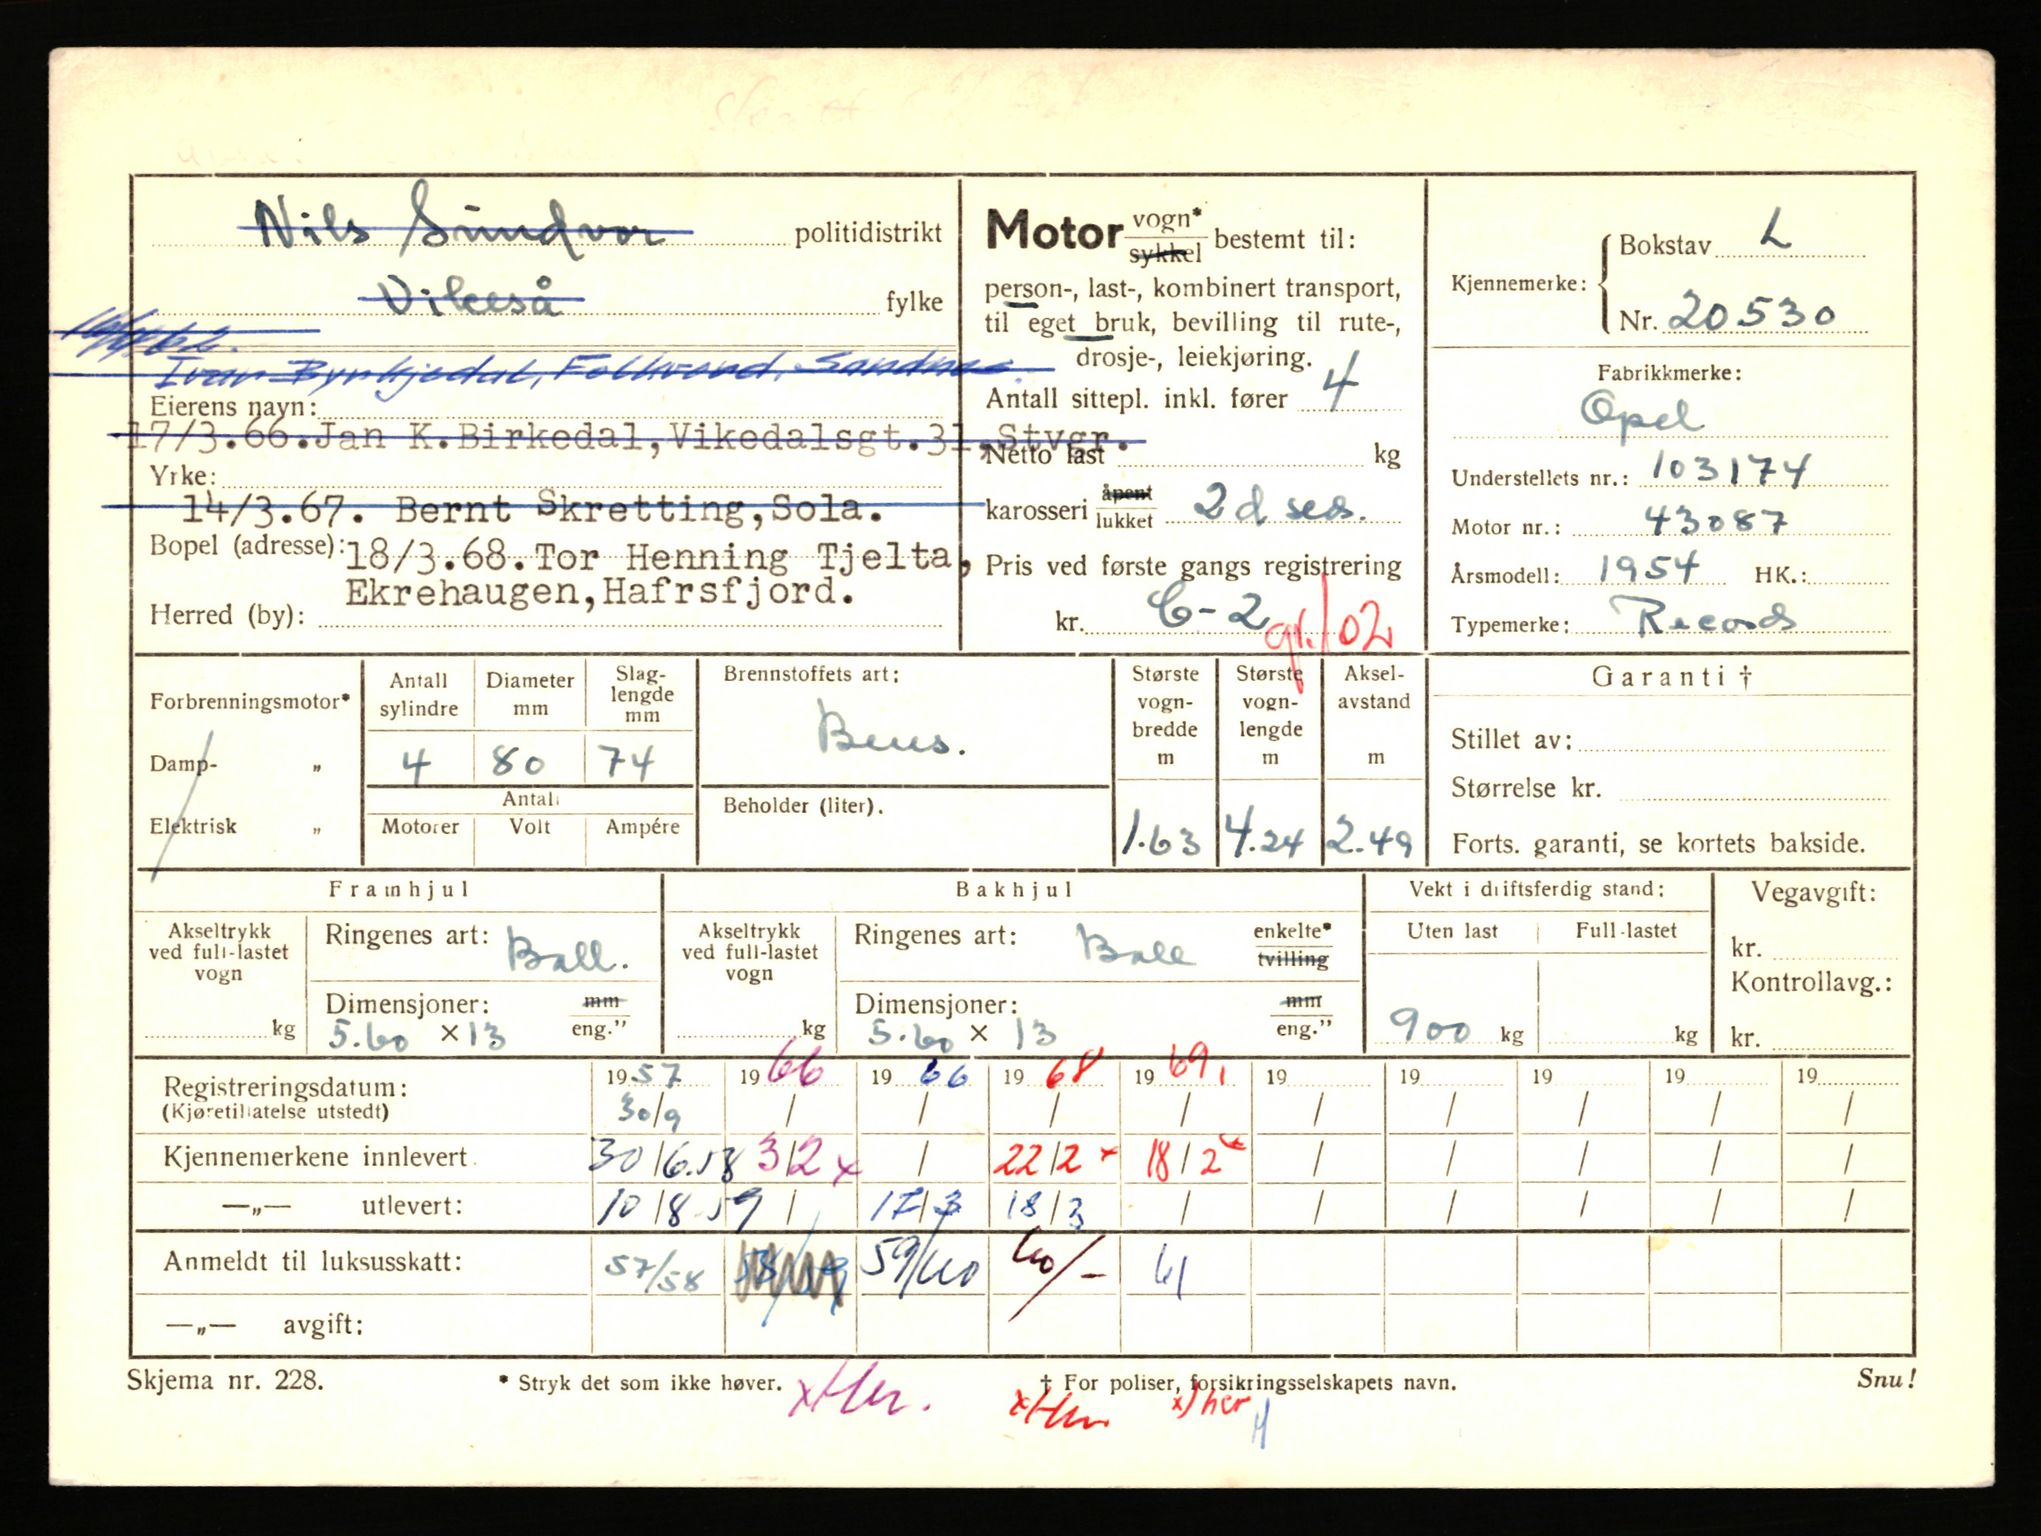 Nils Sundvor politidistrikt
Vikeså fylke
Ivar Byrkjedal, Sandnes.
Eierens navn:
17/3.66.Jan K.Birkedal,Vikedalsgt.31,Stvgr.
Yrke:
14/3.67. Bernt Skretting,Sola.
Bopel (adresse): 18/3.68.Tor Henning Tjelta,
Ekrehaugen,Hafrsfjord.
Herred (by):
Motor vogn* sykkel bestemt til:
person-, last-, kombinert transport,
til eget bruk, bevilling til rute-,
drosje-, leiekjøring.
Antall sittepl. inkl. fører 4
Netto last kg
karosseri åpent lukket 2 d sed.
Pris ved første gangs registrering
kr. C-2 gr. 02
Kjennemerke: Bokstav L
Nr. 20530
Fabrikkmerke:
Opel
Understellets nr.: 103174
Motor nr.: 43087
Årsmodell: 1954 HK.:
Typemerke: Record
Forbrenningsmotor*
Damp- „
Elektrisk „
Antall sylindre Diameter mm Slag-lengde mm
4 80 74
Antall
Motorer Volt Ampére
Brennstoffets art:
Bens.
Beholder (liter).
Største vogn-bredde m Største vogn-lengde m Aksel-avstand m
1.63 4.24 2.49
Garanti †
Stillet av:
Størrelse kr.
Forts. garanti, se kortets bakside.
Framhjul
Akseltrykk ved full-lastet vogn
kg
Ringenes art: Ball.
Dimensjoner: mm
5.60 x 13 eng.”
Bakhjul
Akseltrykk ved full-lastet vogn
kg
Ringenes art: Ball enkelte* tvilling
Dimensjoner: mm
5.60 x 13 eng.”
Vekt i driftsferdig stand:
Uten last Full-lastet
900 kg kg
Vegavgift:
kr.
Kontrollavg.:
kr.
Registreringsdatum: 1957 1966 1966 1968 1969 19 19 19 19 19
(Kjøretillatelse utstedt) 30/9 / / / / / / / / /
Kjennemerkene innlevert 30/6.58 3/2 x / 22/2 x 18/2 x / / / / /
—„— utlevert: 10/8.59 / 17/3 18/3 / / / / / /
Anmeldt til luksusskatt: 57/58 58/59 59/60 60/- 61
—„— avgift:
Skjema nr. 228. * Stryk det som ikke høver. † For poliser, forsikringsselskapets navn. Snu!
x Her. x Her x) her